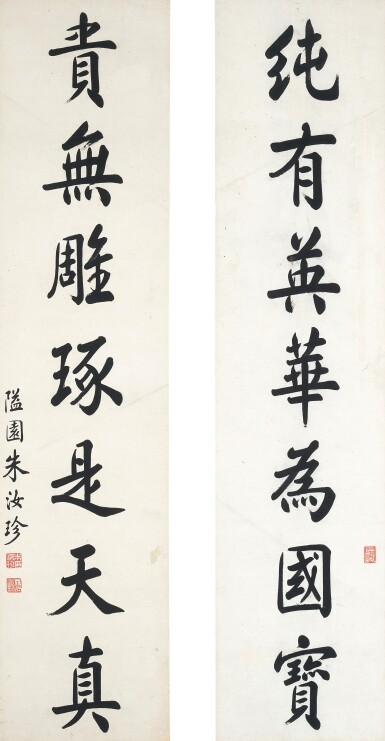 純有英華為國寶
貴無雕琢是天真
隘園朱汝珍